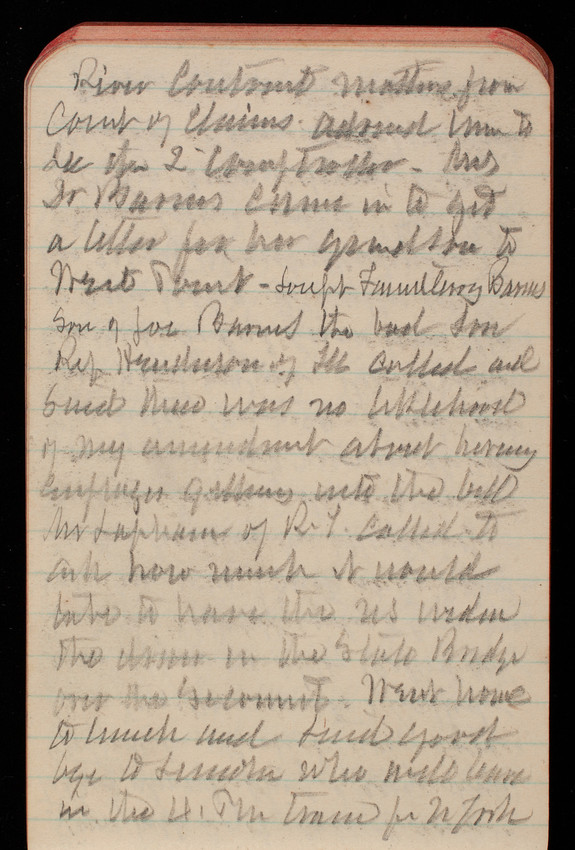 River Contract matters from
Court of Claims. advised him to
see the 2 Comptroller - Mrs
Dr Barnes came in to get
a letter for her grandson to
West Point - Barnes
Son of Joe Barnes the bad son
Rep Henderson of Ill called and
said there was no liklehood
of my amendment about hiring
employes getting into the bill
Mr Lapham of R.I. called to
ask how much it would
take to have the US widen
the draw in the State Bridge
over the Seconnet. Went home
to lunch and said good
bye to who will leave
in the 4. PM train for N York